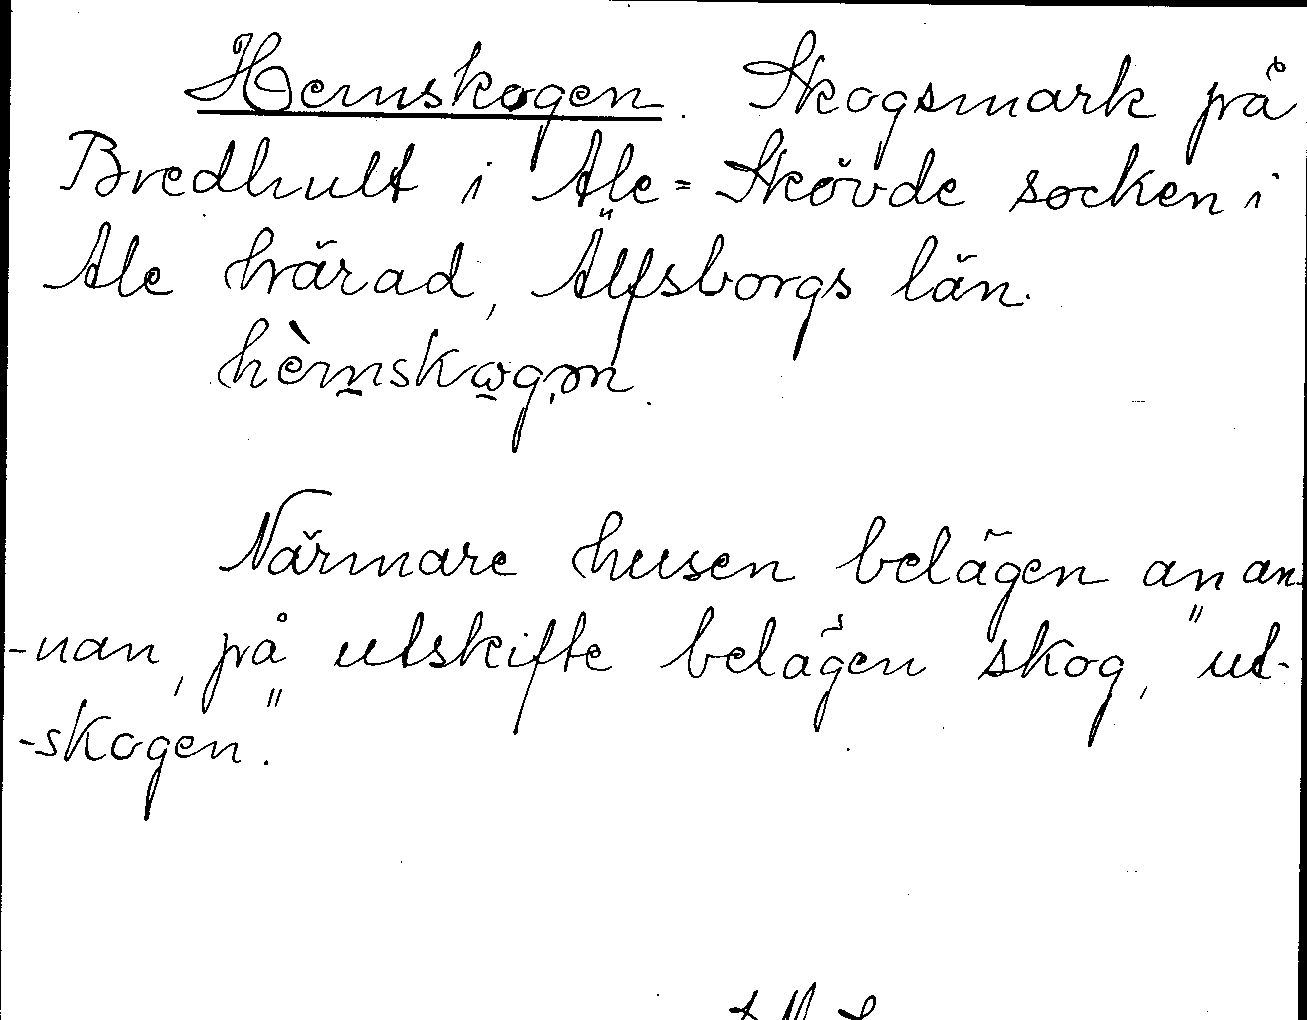 Hemskogen. Skogsmark på
Bredhult i Ale-Skövde socken i
Ale härad, Älfsborgs län.
hèmskωgən.
Närmare husen belägen än an-
-nan, på utskifte belägen skog, "ut-
-skogen."